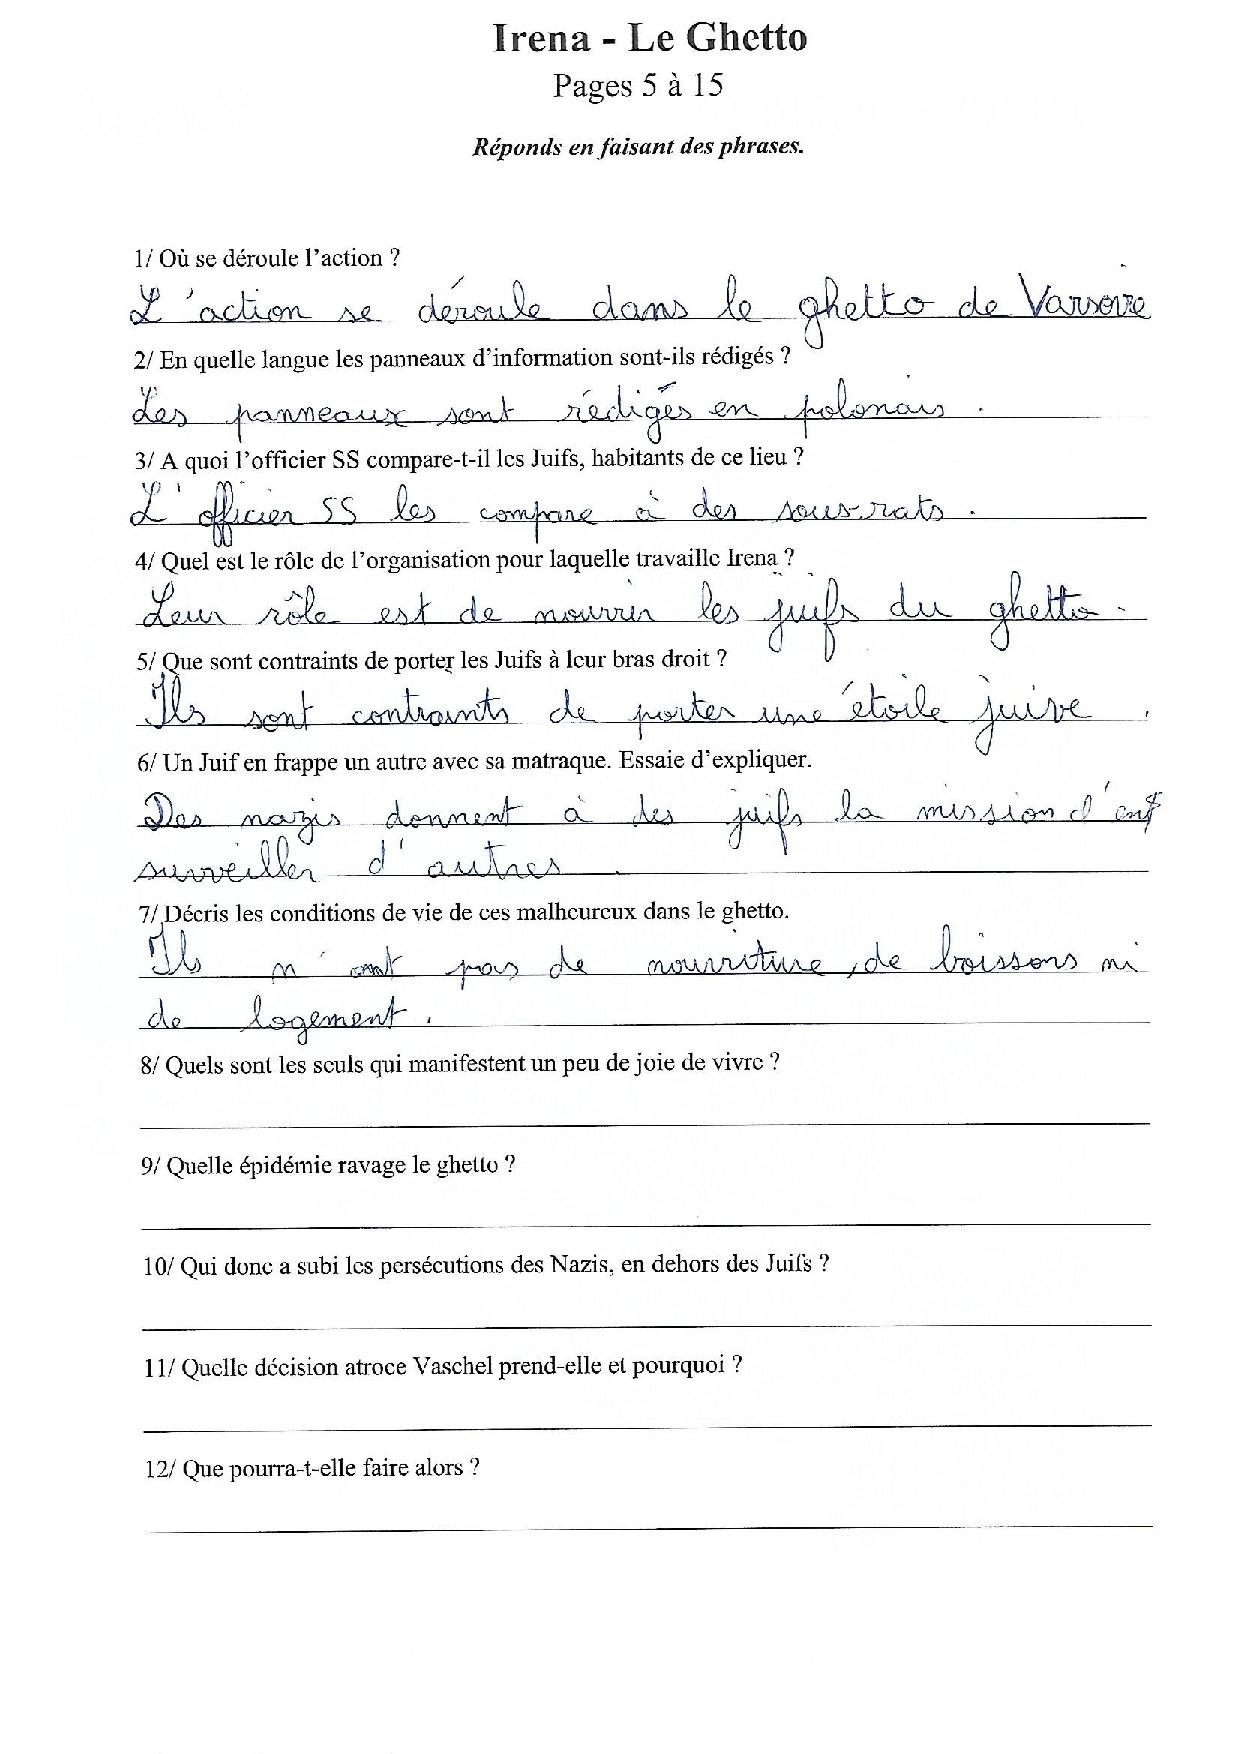 Irena - Le Ghetto
Pages 5 à 15
Réponds en faisant des phrases.
1/ Où se déroule l'action ?
L'action se déroule dans le ghetto de Varsovie
2/ En quelle langue les panneaux d'information sont-ils rédigés ?
Les panneaux sont rédigés en polonais.
3/ A quoi l'officier SS compare-t-il les Juifs, habitants de ce lieu ?
L'officier SS les compare à des sous-rats.
4/ Quel est le rôle de l'organisation pour laquelle travaille Irena ?
Leur rôle est de nourrir les juifs du ghetto.
5/ Que sont contraints de porter les Juifs à leur bras droit ?
Ils sont contraints de porter une étoile juive.
6/ Un Juif en frappe un autre avec sa matraque. Essaie d'expliquer.
Des nazis donnent à des juifs la mission d'en
surveiller d'autres.
7/ Décris les conditions de vie de ces malheureux dans le ghetto.
Ils n'ont pas de nourriture, de boissons ni
de logement.
8/ Quels sont les seuls qui manifestent un peu de joie de vivre ?
9/ Quelle épidémie ravage le ghetto ?
10/ Qui donc a subi les persécutions des Nazis, en dehors des Juifs ?
11/ Quelle décision atroce Vaschel prend-elle et pourquoi ?
12/ Que pourra-t-elle faire alors ?